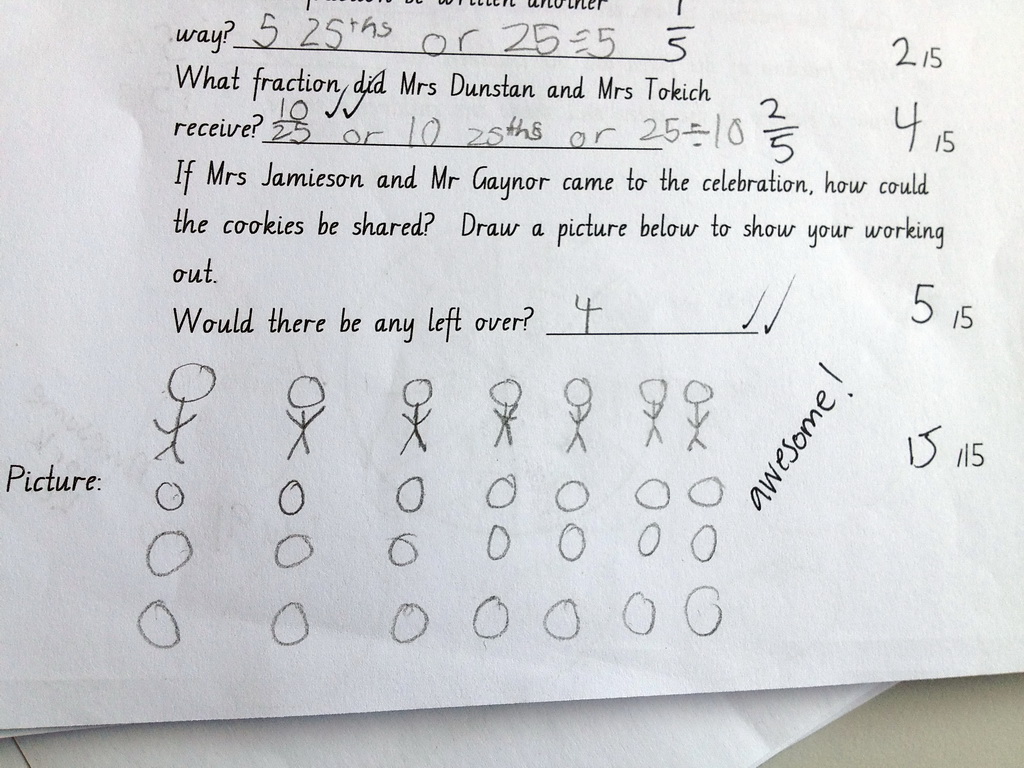 way? 5 25ths or 25÷5 1/5 2/5
What fraction did Mrs Dunstan and Mrs Tokich
receive? 10/25 or 10 25ths or 25÷10 2/5 4/5
If Mrs Jamieson and Mr Gaynor came to the celebration, how could
the cookies be shared? Draw a picture below to show your working
out.
Would there be any left over? 4 5/5
awesome!
15/15
Picture: